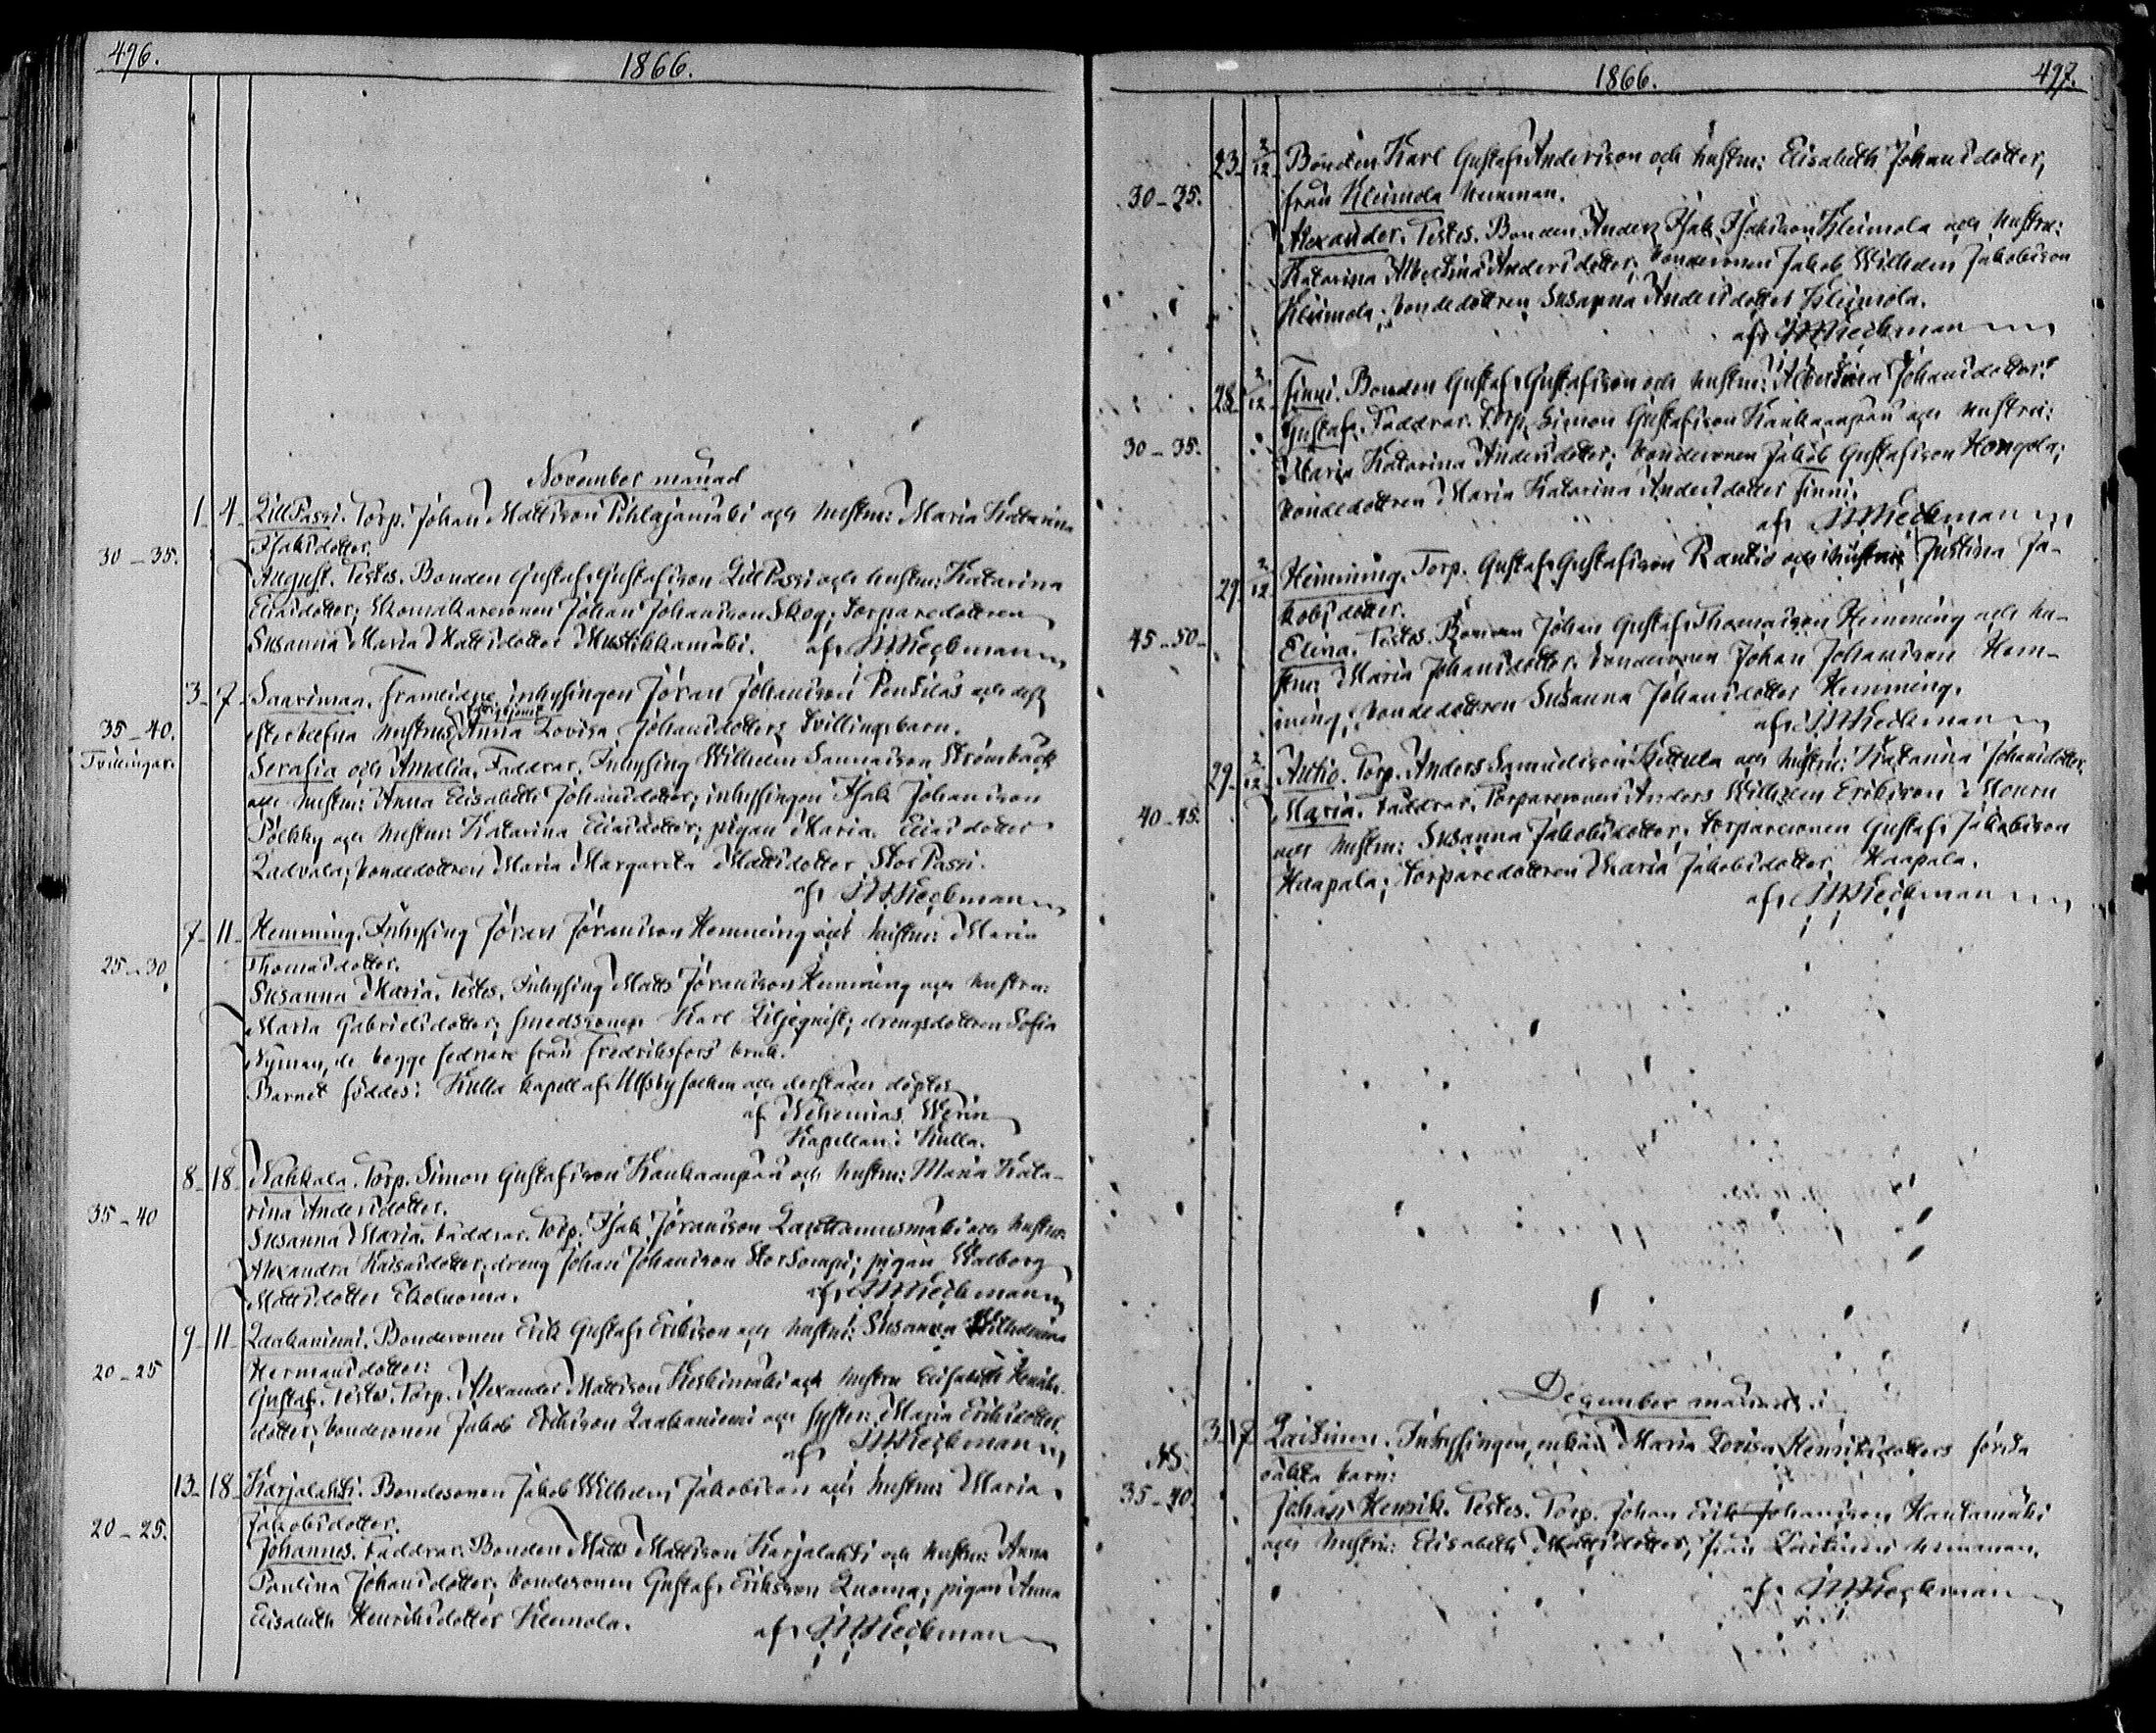 496.
1866.
November månad
1. 4. Lill Passi. Torp. Johan Mattsson Pihlajamäki och hustru: Maria Katarina
Isaksdotter.
30–35.
August. Testes. Bonden Gustaf Gustafsson Lill Passi och hustru: Katarina
Eliasdotter; Skomakaresonen Johan Johansson Skog; torparedottren
Susanna Maria Mattsdotter Mustikkamäki. af
3. 7. Saarimaa. Framlidne inhysingen Jöran Johansson Penttilas och dess
35–40. efterlefva hustrus Anna Lovisa Johansdotters tvillingsbarn.
Tvillingar. Serafia och Amalia. Faddrar. Inhysing Wilhelm Strömbäck
och hustru: Anna Elisabeth Johansdotter; inhysingen Isak Johansson
och hustru: Katarina Eliasdotter; pigan Maria Eliasdotter
bondedottren Maria Margareta Mattsdotter Stor Passi.
af
7. 11. Hemming. Inhysing Jöran Jöransson Hemming och hustru: Maria
25–30 Thomasdotter.
Susanna Maria. Testes. Inhysing Matts Jöransson Hemming och hustru:
Maria Gabrielsdotter; smedssonen Karl Liljeqvist; drengsdottren Sofia
Nyman, de begge sednare från Fredriksfors bruk.
Barnet föddes i Kulla kapell af Ulfsby socken och derstädes döptes
af Nehemias
Kapellan i Kulla.
8. 18. Nakkala. Torp. Simon Gustafsson Kankaanpää och hustru: Maria Kata-
35–40 rina Andersdotter.
Susanna Maria. Faddrar. Torp. Isak Jöransson och hustru
Alexandra dreng Johan Johansson pigan Walborg
Mattsdotter af
9. 11. Laakaniemi. Bondesonen Erik Gustaf Eriksson och hustru: Susanna Wilhelmina
20–25 Hermansdotter:
Gustaf. Testes. Torp. Alexander Mattsson Keskimäki och hustru Elisabeth Henriks-
dotter; bondesonen Jakob Eriksson Laakaniemi och syster: Maria Eriksdotter.
af
13. 18. Karjalahti. Bondesonen Jakob Wilhelm Jakobsson och hustru: Maria
20–25. Jakobsdotter.
Johannes. Faddrar. Bonden Matts Mattsson Karjalahti och hustru: Anna
Paulina Johansdotter; bondesonen Gustaf Eriksson Luoma; pigan Anna
Elisabeth Henriksdotter Klemola. af
1866.
497.
23. 2/12. Bonden Karl Gustaf Andersson och hustru: Elisabeth Johansdotter,
30–35. från Kleimola hemman.
Alexander. Testes. Bonden Anders Isak Isaksson Kleimola och hustru:
Katarina Albertina Andersdotter; bondesonen Jakob Wilhelm Jakobsson
Kleimola; bondedottren Susanna Andersdotter Kleimola.
af
28. 2/12. Finni. Bonden Gustaf Gustafsson och hustru: Albertina Johansdotter:
30–35. Gustaf. Faddrar. Torp. Simon Gustafsson Kankaanpää och hustru:
Maria Katarina Andersdotter; bondesonen Jakob Gustafsson Hongola;
bondedottren Maria Katarina Andersdotter Finni.
af
29. 2/12. Hemming. Torp. Gustaf Gustafsson Rantio och hustru: Justina Ja-
kobsdotter.
45–50. Elina. Testes. Bonden Johan Gustaf Thomasson Hemming och hu-
stru: Maria Johansdotter; bondesonen Johan Johansson Hem-
ming; bondedottren Susanna Johansdotter Hemming.
af
29. 2/12. Antio. Torp. Anders Samuelsson och hustru: Katarina Johansdotter.
40–45. Maria. Faddrar. Torparesonen Anders Wilhelm Eriksson
och hustru: Susanna Jakobsdotter; torparesonen Gustaf Jakobsson
Haapala; torparedottren Maria Jakobsdotter Haapala.
af
December månad
3. 17. Laitinen. Inhysingen, enkan Maria Lovisa Henriksdotters första
oäkta barn:
35–40. Johan Henrik. Testes. Torp. Johan Erik Johansson Hautamäki
och hustru: Elisabeth Mattsdotter, från Laitinen hemman.
af